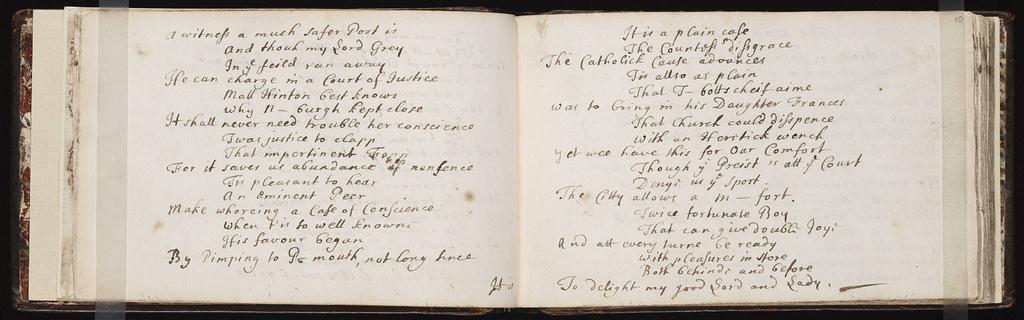 A witness a much safer Post is
And thouh my Lord Grey
In yͤ feild ran away
He can charge in a Court of Justice
Mall Hinton best knows
Why N— burgh kept close
It shall never need trouble her conscience
Twas justice to clapp
That impertinent
For it saves us abundance of nonsence
Tis pleasant to hear
An Eminent Peer
Make whoreing a Case of Conscience
When t'is to well known
His favour began
By Pimping to mouth, not long since
It is
10
It is a plain case
The Countess disgrace
The Catholick Cause advances
Tis allso as plain
That T— botts cheif aime
was to bring in his Daughter Frances
That Church could disspence
With an Heritick wench
yet wee have this for Our Comfort
Though yͤ Preist is att yͤ Court
Denys us yͤ Sport
The Citty allows a m— fort.
Twice fortunate Boy
That can give double Joys
And att every turne be ready
With pleasures in store
Both behinde and before
To delight my good Lord and Lady.